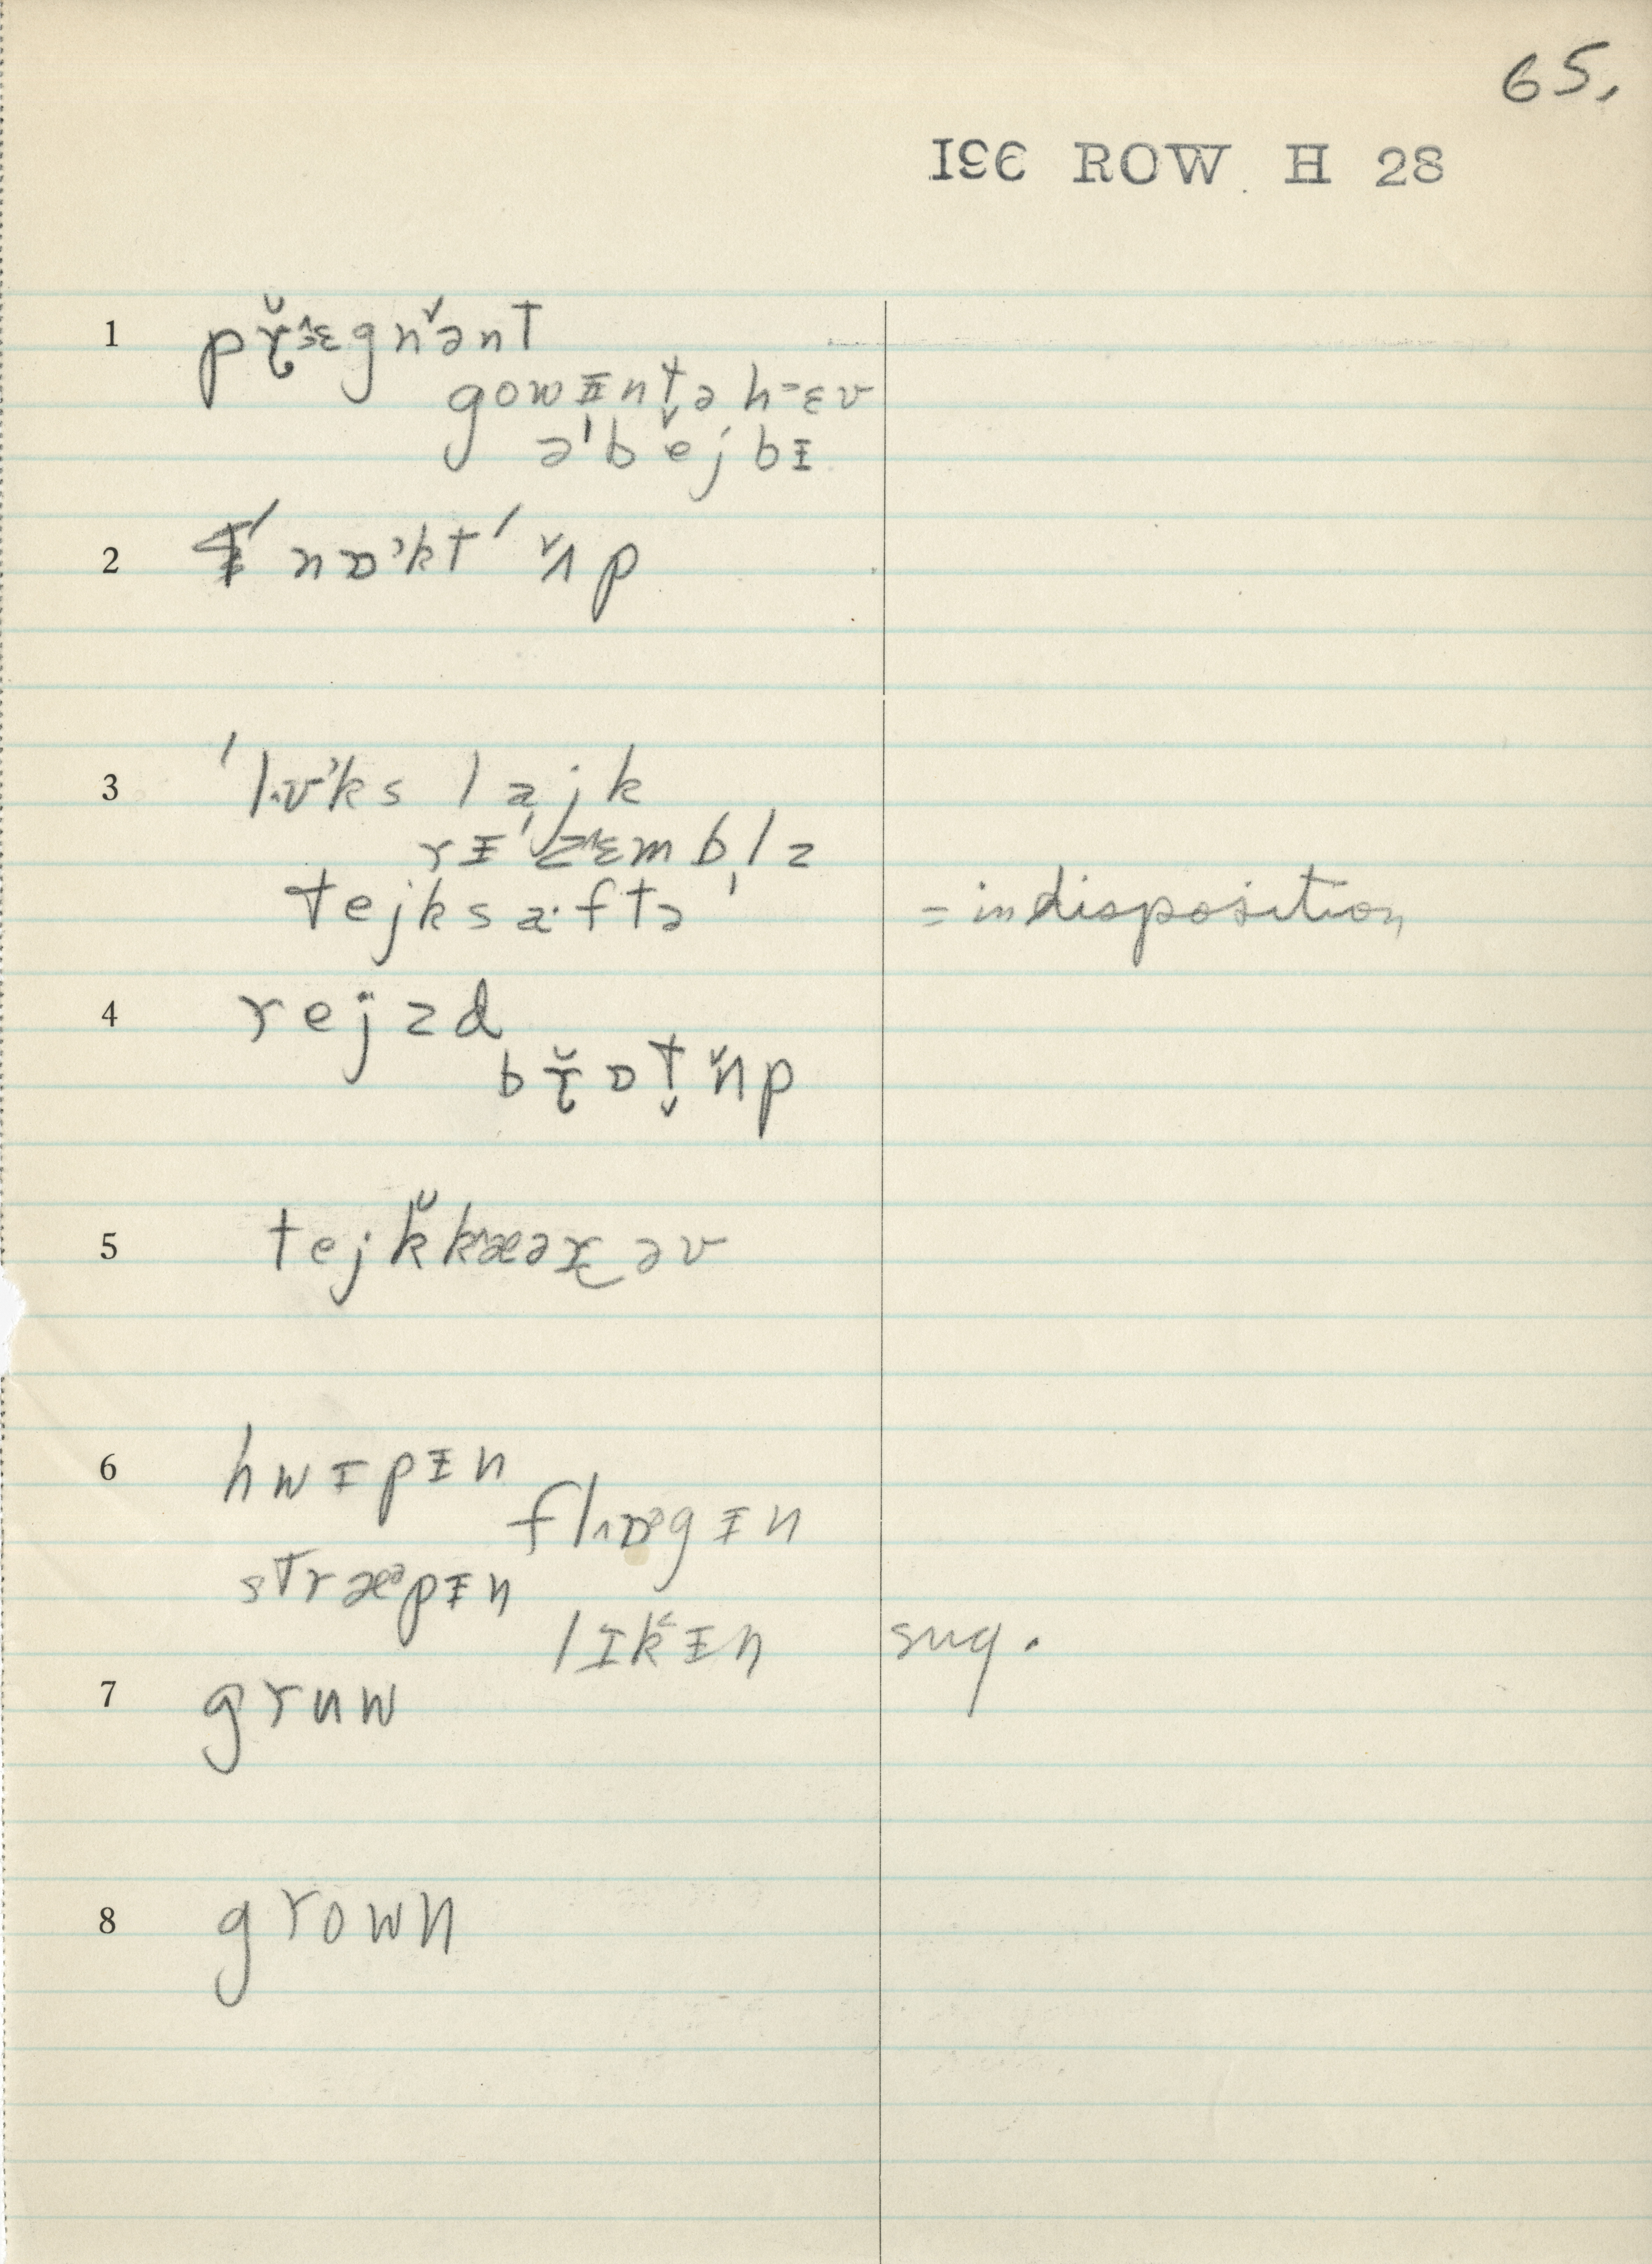 65.
ISE ROW H 28
1 pr̆ɛgnənt
gowɪntə hɛv
ə'bejbɪ
2 nɒ'kt' ʌp
3 'lʊ'ks lajk
rɪ'zɛmblz
tejksaˑftə = indisposition
4 rejzd
br̆ɒt̬ ʌp
5 tejk̆ kæər əv
6 hwɪpɨn
flɒgɨn
stræᵊpɨn
lɪkɨn sug.
7 gruw
8 grown